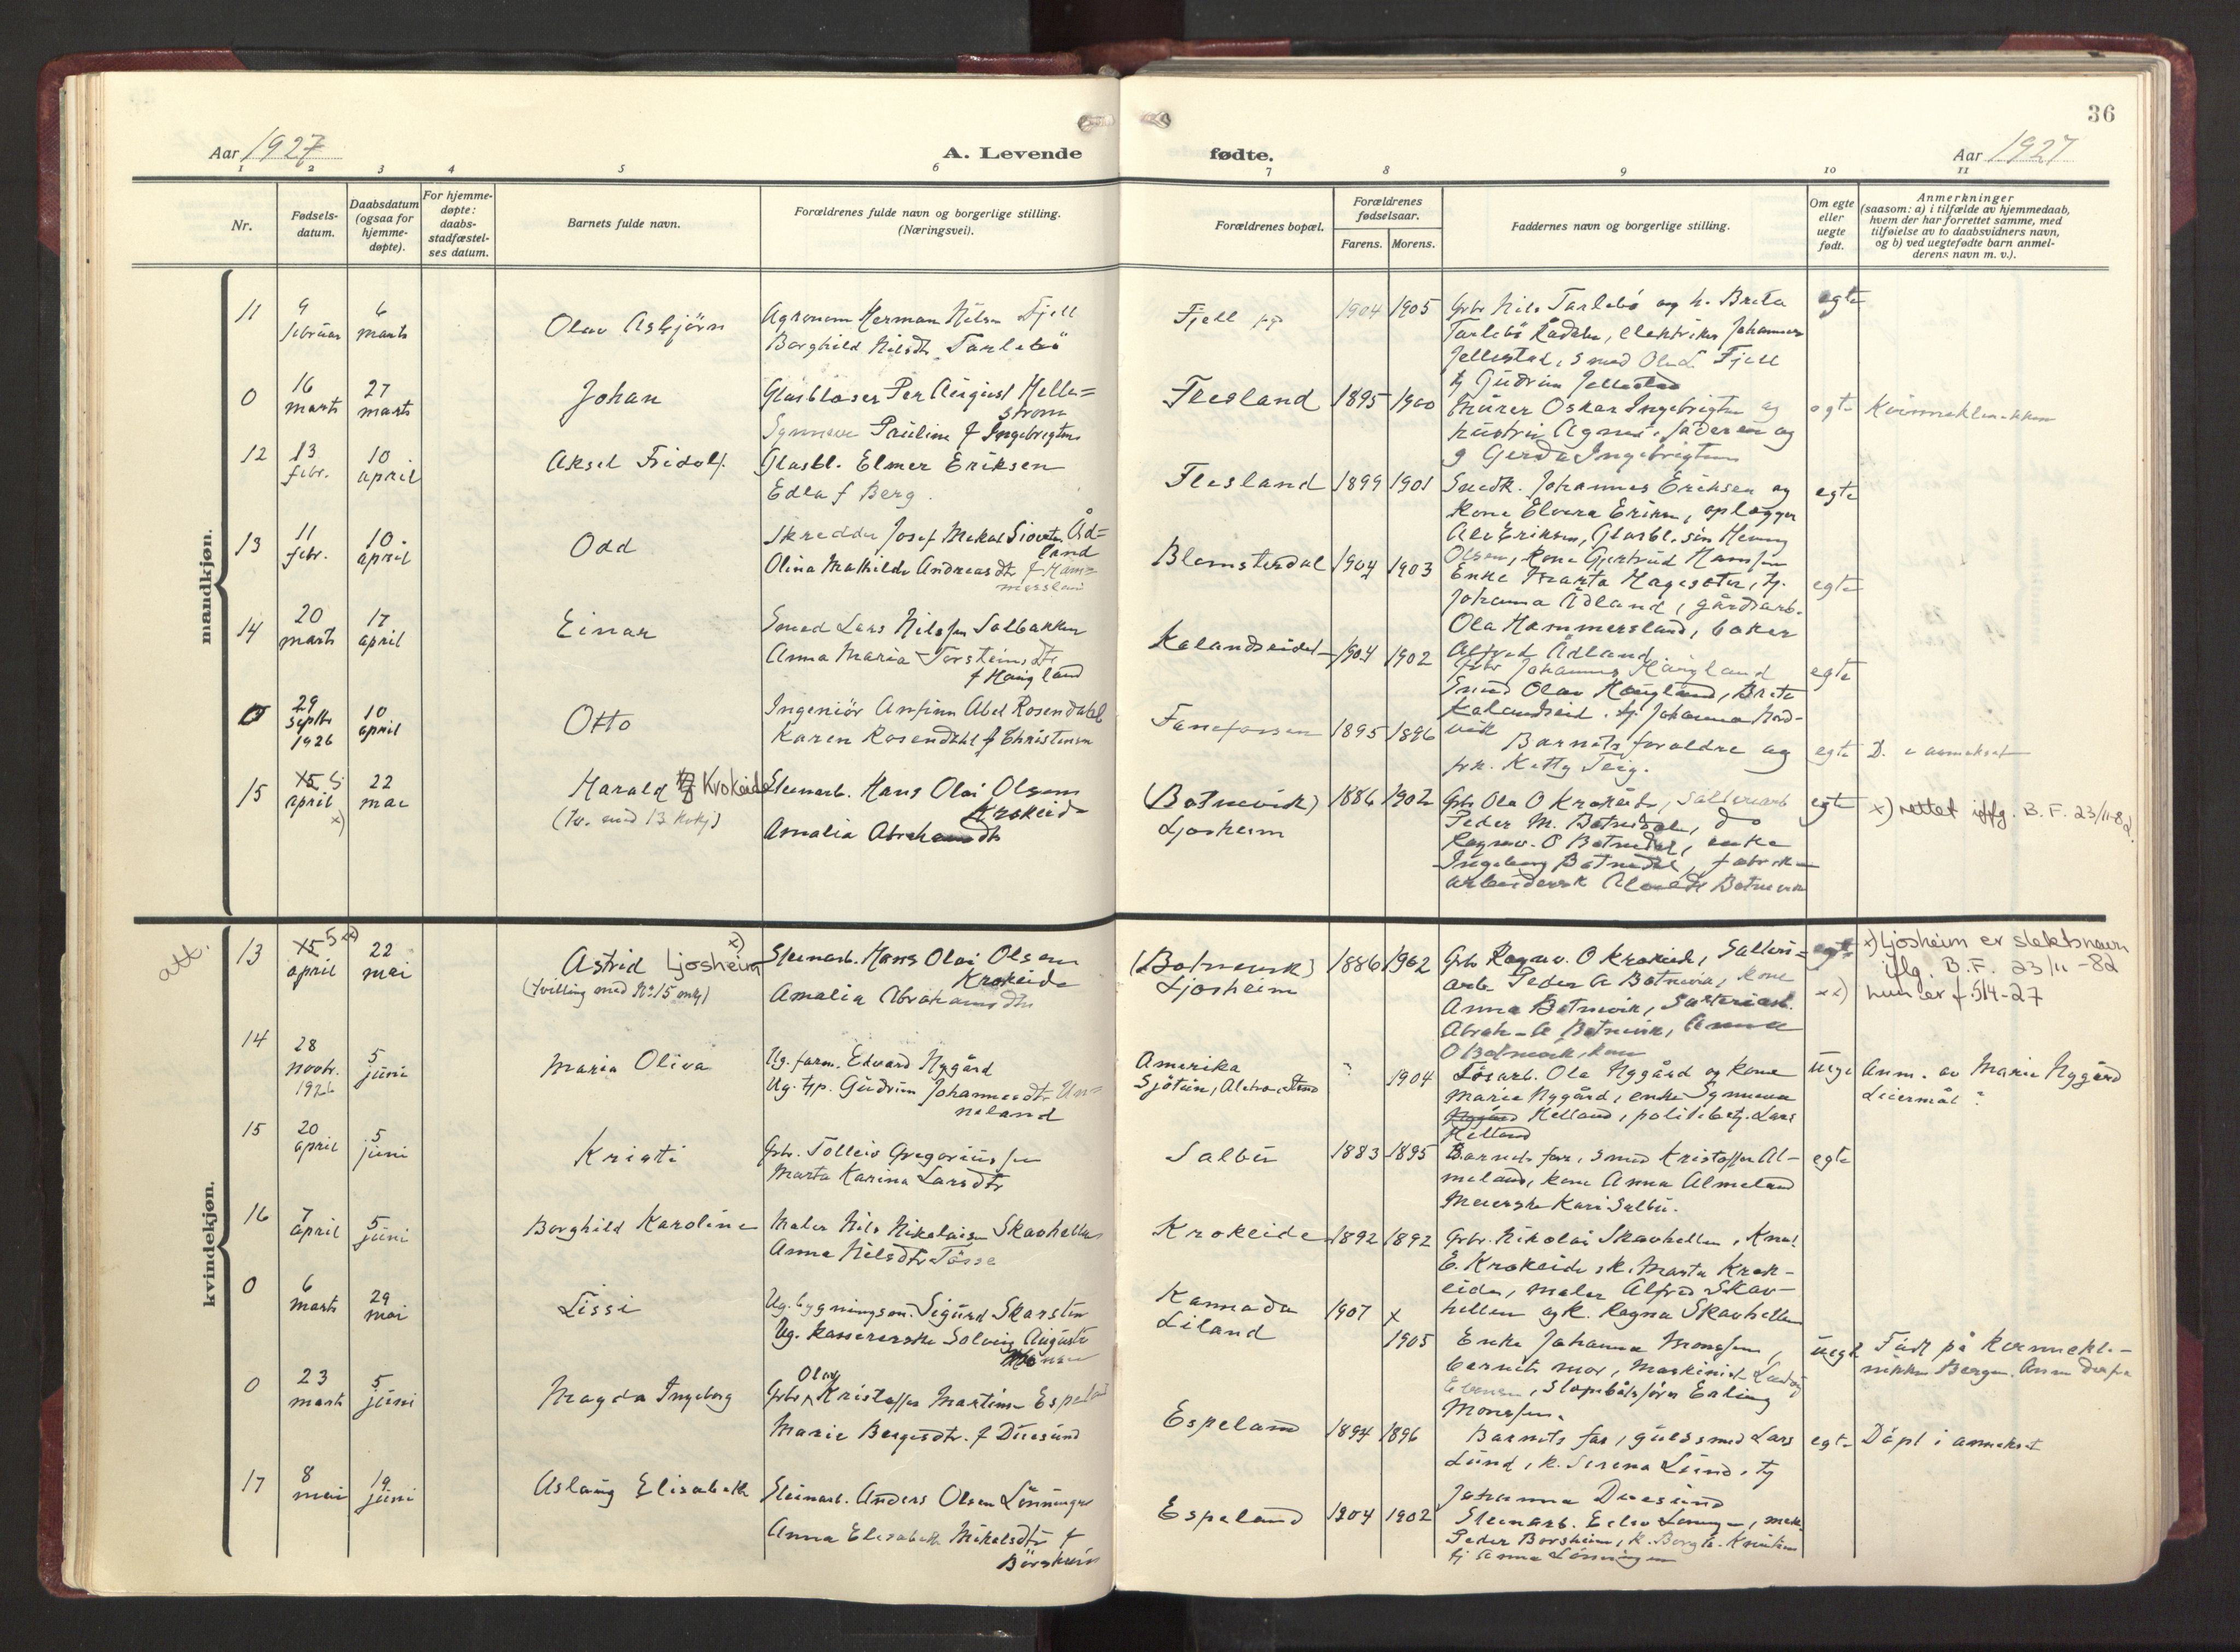 36
Aar 1927
A. Levende
fødte.
Aar 1927
1 2 3 4 5 6 7 8 9 10 11
Nr.
Fødsels-
datum.
Daabsdatum
(ogsaa for
hjemme-
døpte).
For hjemme-
døpte:
daabs-
stadfæstel-
ses datum.
Barnets fulde navn.
Forældrenes fulde navn og borgerlige stilling.
(Næringsvei).
Forældrenes bopæl.
Forældrenes
fødselsaar.
Farens. Morens.
Faddernes navn og borgerlige stilling.
Om egte
eller
uegte
født.
Anmerkninger
(saasom: a) i tilfælde av hjemmedaab,
hvem der har forrettet samme, med
tilføielse av to daabsvidners navn,
og b) ved uegtefødte barn anmel-
derens navn m. v.).
mandkjøn.
11
9
februar
6
marts
Olav Asbjörn
Agronom Herman Nilsen Fjell
Borghild Nilsdtr. Tarlebö
Fjell
1904 1905
Grbr Nils Tarlebö og h. Brita
Tarlebö Rådalen, elektriker Johannes
Jellestad, smed Ole L Fjell
tj Gudrun Jellestad
egte
0
16
marts
27
marts
Johan
Glasblaser Per August Helle=
strøm
Synneve Pauline f Ingebrigtsen
Flesland
1895 1900
Murer Oskar Ingebrigtsen og
hustru Agnes,
g Gerda Ingebrigtsen
egte
12
13
febr.
10
april
Aksel Fridolf.
Glasbl. Elmer Eriksen
Edla f Berg.
Flesland
1899 1901
Snedk. Johannes Eriksen og
kone Elvera Eriksen, oplægger
Alv Eriksen, Glasbl. sön Henny
Olsen, kone Gjertrud Hansen
egte
13
11
febr.
10.
april
Odd
Skredder Josef Mikal Sivertsen Åd=
land
Olina Mathilde Andreasdtr f Ham=
mersland
Blomsterdal
1904 1903
Enke Marta Hageseter, tj.
Johanna Ådland, gårdsarb.
Ola Hammersland, baker
Alfred Ådland
egte
14
20
marts
17
april
Einar
Smed Lars Nilsen Solbakken
Anna Maria Torsteinsdtr
f Haugland
Kalandseidet
1904 1902
Grbr Johannes Haugland
Smed Olav Haugland, Brita
Kalandseid, tj. Johanna Nord-
vik
egte
0
29
septbr
1926
10
april
Otto
Ingeniör Anfinn Abel Rosendahl
Karen Rosendahl f Christensen
Fanafossen
1895 1896
Barnets foreldre og
frk. Ketty Teig.
egte
D. i annekset
15
15 5
april
x)
22
mai
Harald Krokeide
(Tv. med 13 kvkj)
Steenarb. Hans Olai Olsen
Krokeide
Amalia Abrahamsdtr
(Botnevik)
Ljosheim
1886 1902
Grbr Ola O Krokeide, Salteriarb
Peder M. Botnedal, do
Ragnv. O Botnedal, enke
Ingeborg Botnedal, fabrik=
arbeiderske Botnevik
egte
x) rettet iflg. B.F. 23/11-82
kvindekjøn.
att.
13
15 5 xx)
april
22
mai
Astrid Ljosheim x)
(Tvilling med Nr 15 mkj)
Steenarb. Hans Olai Olsen
Krokeide
Amalia Abrahamsdtr
(Botnevik)
Ljosheim
1886 1902
Grbr Ragnv. O Krokeide, Salteri=
arb. Peder A Botnevik, kone
Anna Botnevik, Salteriarb.
Abrah. A Botnevik, Anna
O Botnevik, kone
egte
x) Ljosheim er slektsnavn
iflg. B.F. 23/11-82
xx) hun er f. 5/4-27
14
28
novbr.
1926
5
juni
Maria Oliva
Ug. farm. Edvard Nygård
Ug. tjp. Gudrun Johannesdtr Un=
neland
Amerika
Sjötun, Alstra, Stend
? 1904
Lösarb. Ola Nygård og kone
Marie Nygård, enke Synneva
Helland, politibetj. Lars
Helland
uegte
Anm. av Marie Nygård
Leiermål ?
15
20
april
5
juni
Kristi
Grbr. Tolleiv Gregoriussen
Marta Karina Larsdtr
Salbu
1883 1895
Barnets far, smed Kristoffer Al-
meland, kone Anna Almeland
Meierske Kari Salbu.
egte
16
7
april
5
juni
Borghild Karoline
Maler Nils Nikolaisen Skavhellen
Anna Nilsdtr Tösse
Krokeide
1892 1892
Grbr. Nikolai Skavhellen, Knut
E. Krokeide k. Marta Krok-
eide, maler Alfred Skav-
hellen og k. Ragna Skavhellen
0
6
marts
29
mai
Lissi
Ug. bygningssn. Sigurd Skarstein
Ug. kassererske Solveig Auguste
Monsen
Kannada
Liland
1907 x
1905
Enke Johanna Monsen,
barnets mor, Maskinist Ludvig
Slæpebåtsfører Erling
Monsen.
uegte
Födt på kvinnekli-
nikken Bergen. Anm derfra
0
23
marts
5
juni
Magda Ingeborg
Olav
Grbr Kristoffer Martinsen Espeland
Marie Bergesdtr. f Duesund
Espeland
1894 1896
Barnets far, gulssmed Lars
Lund, k. Serena Lund, tj
Johanna Duesund
egte
Döpt i annekset
17
8
mai
19
juni
Aslaug Elisabeth
Steinarb. Anders Olsen Lönningen
Anna Elisabeth Mikalsdtr f
Börsheim
Espeland
1904 1902
Steenarb. Lönningen, mek.
Peder Borsheim, k. Borgh. Knutsen
tj Anna Lönningen